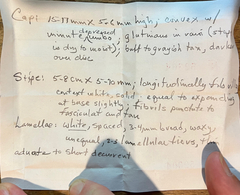 Cap: 15-17mm x 5-6mm high, convex w/
depressed
umbo, glutinous in rain (sticky
in dry to moist), buff to grayish tan, darker
over disc
Stipe: 5-8cm x 5-10mm, longitudinally
white, solid, equal to expanding
at base slightly, fibrils punctate to
fascicular and
Lamellae: white, spaced, 3-4mm broad, waxy,
unequal, lamellular tiers,
adnate to short decurrent